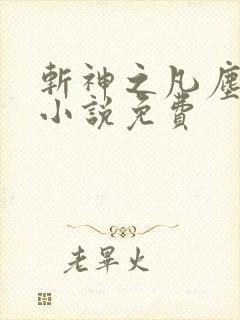 斬神之凡塵
小說免費
老畢火